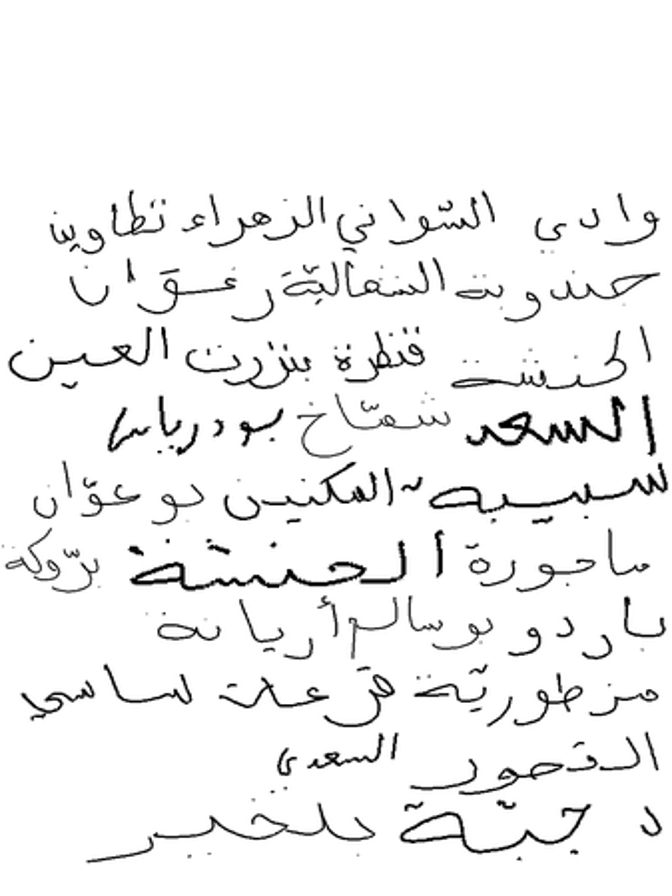 وادي السّواني الزهراء تطاوين
جندوبة الشمّاليّة زغوان
الحنشة قنطرة بنزرت العين
السعد شمّاخ بودرياس
سبيبة المكنين بوعوّان
ماجورة الحنشة برّوكة
باردو بوسالم أريانة
منزطوريّة قرعة ساسي
القصور السعدي
دجبّة بلخير